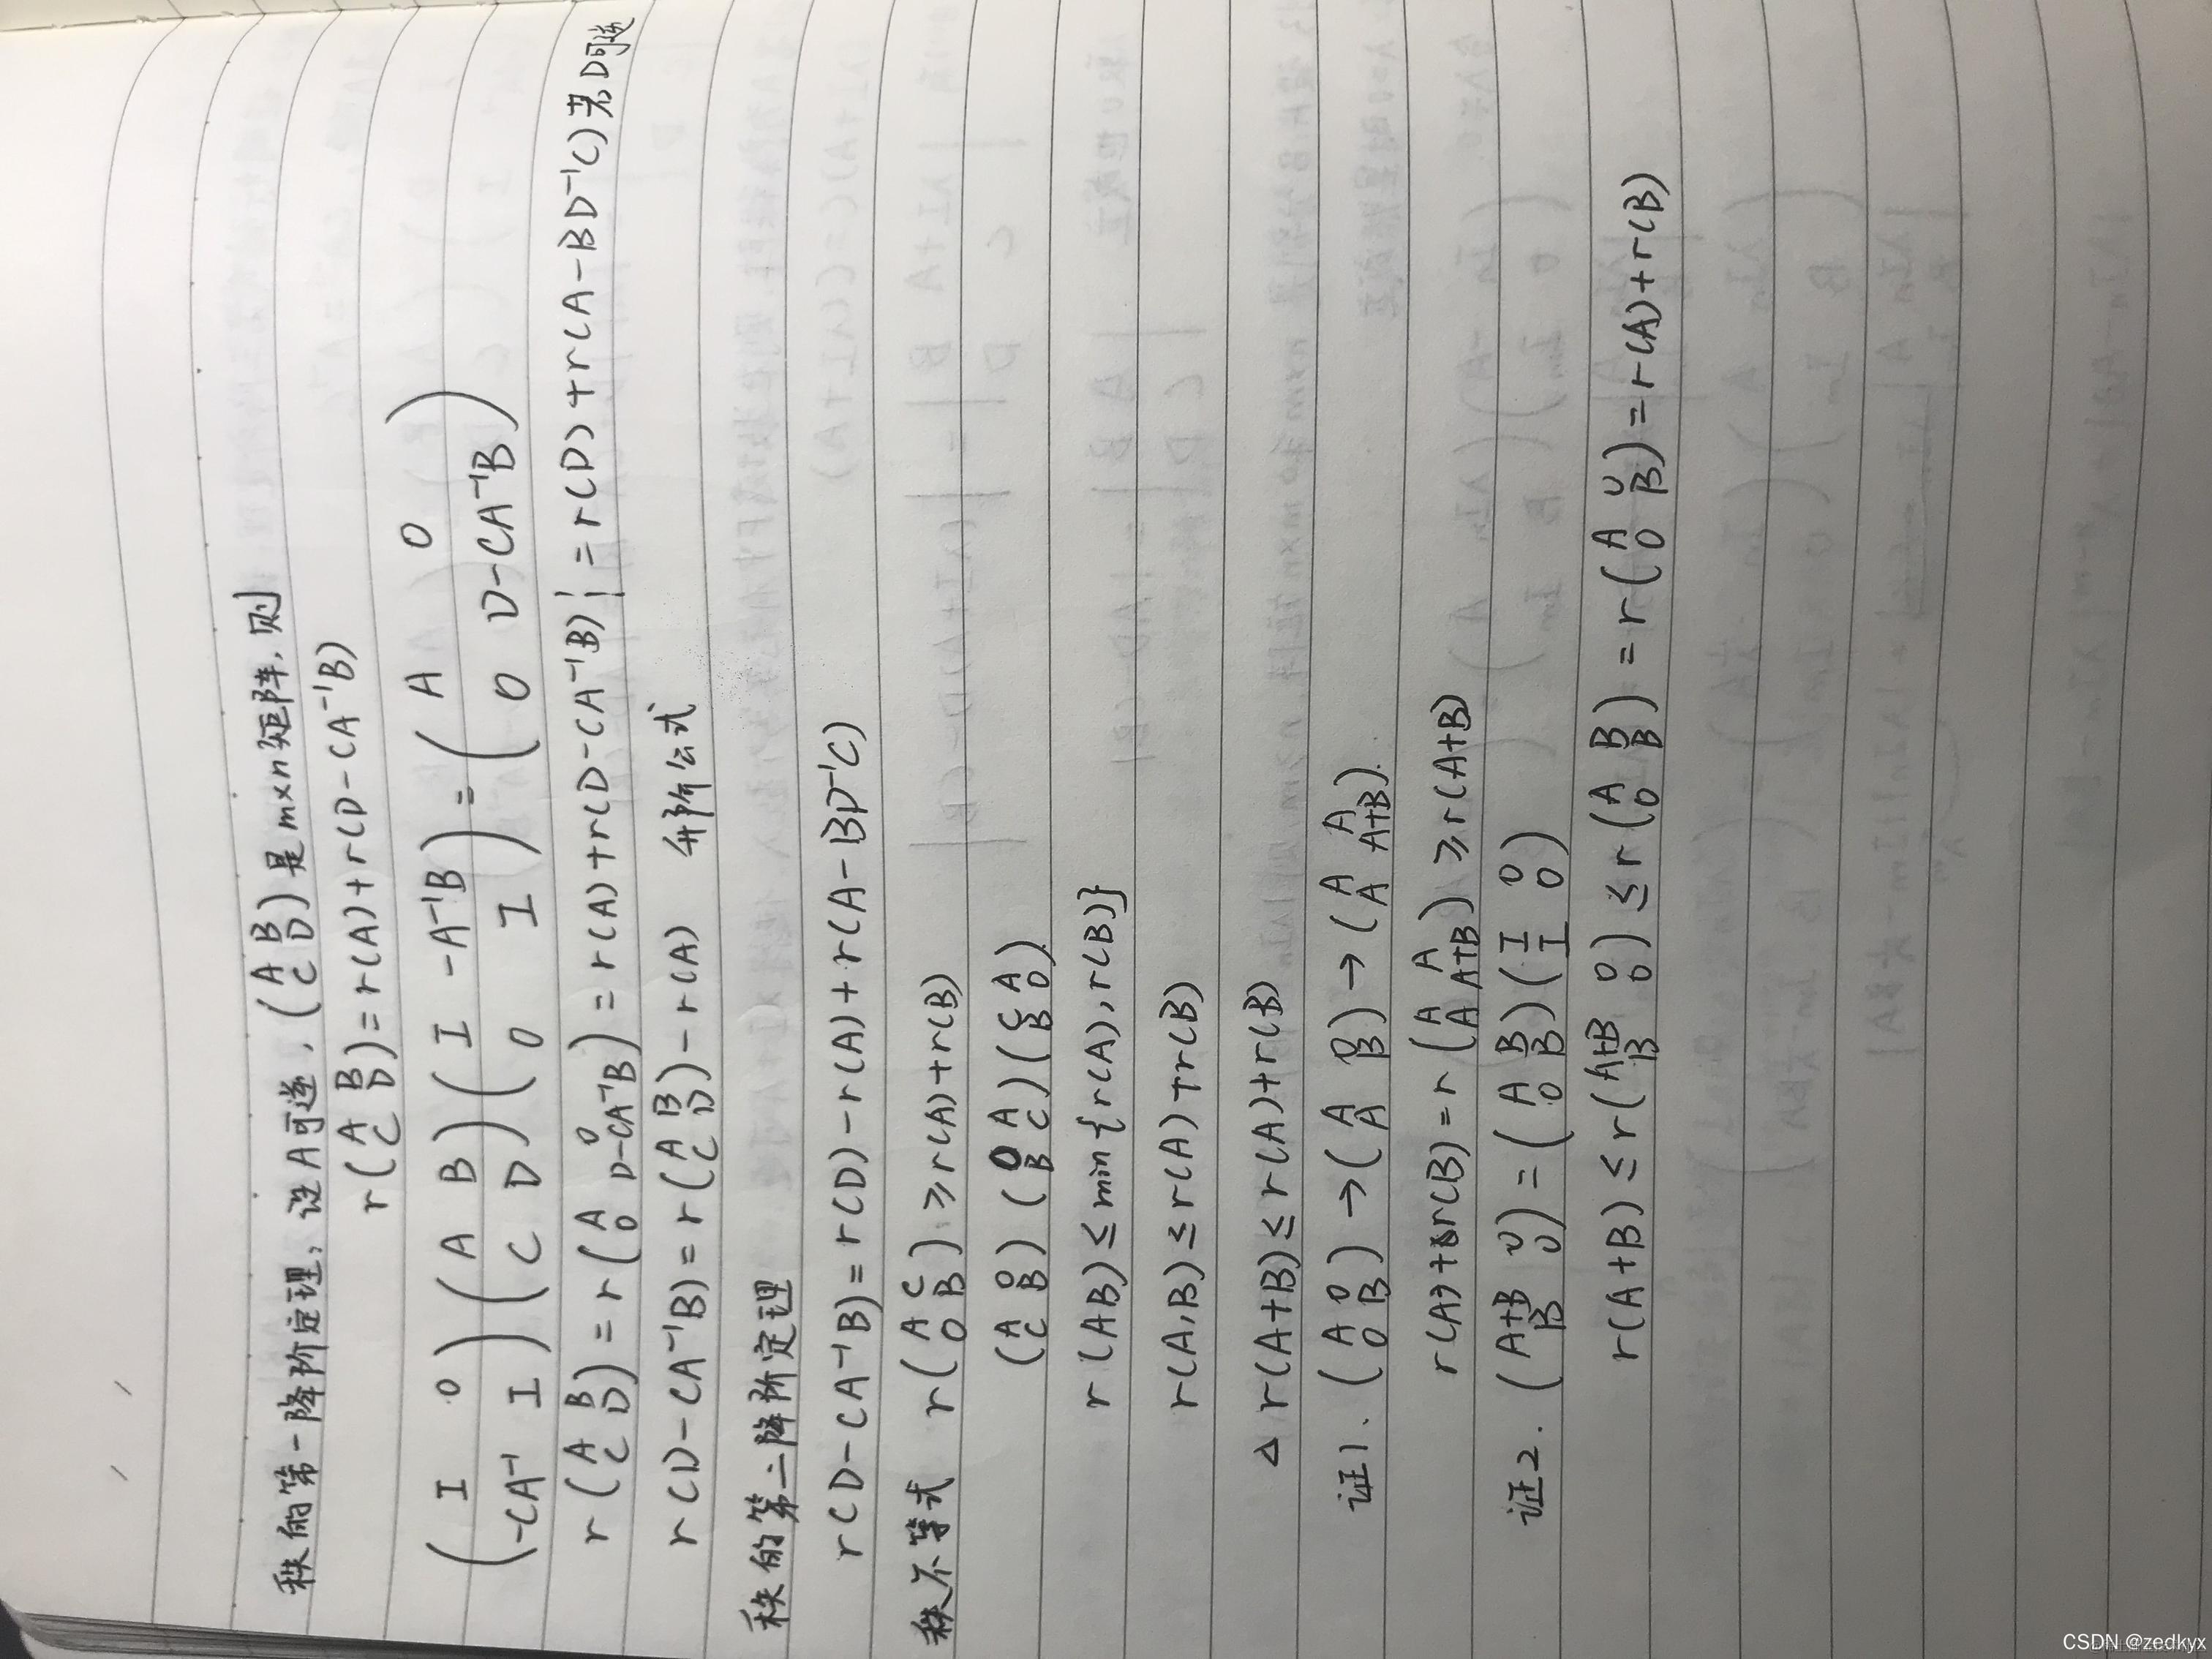 秩的第一降阶定理,设A可逆,(A B / C D)是m×n矩阵,则
r(A B / C D)=r(A)+r(D-CA⁻¹B)
(I 0 / -CA⁻¹ I)(A B / C D)(I -A⁻¹B / 0 I)=(A 0 / 0 D-CA⁻¹B)
r(A B / C D)=r(A 0 / 0 D-CA⁻¹B)=r(A)+r(D-CA⁻¹B)¦=r(D)+r(A-BD⁻¹C)若D可逆
r(D-CA⁻¹B)=r(A B / C D)-r(A) 升阶公式
秩的第二降阶定理
r(D-CA⁻¹B)=r(D)-r(A)+r(A-BD⁻¹C)
秩不等式 r(A C / 0 B)≥r(A)+r(B)
(A 0 / C B)(0 A / B C)(C A / B 0)
r(AB)≤min{r(A),r(B)}
r(A,B)≤r(A)+r(B)
△ r(A+B)≤r(A)+r(B)
证1.(A 0 / 0 B)→(A 0 / A B)→(A A / A A+B).
r(A)+r(B)=r(A A / A A+B)≥r(A+B)
证2.(A+B 0 / B 0)=(A B / 0 B)(I 0 / I 0)
r(A+B)≤r(A+B 0 / B 0)≤r(A B / 0 B)=r(A 0 / 0 B)=r(A)+r(B)
CSDN @zedkyx